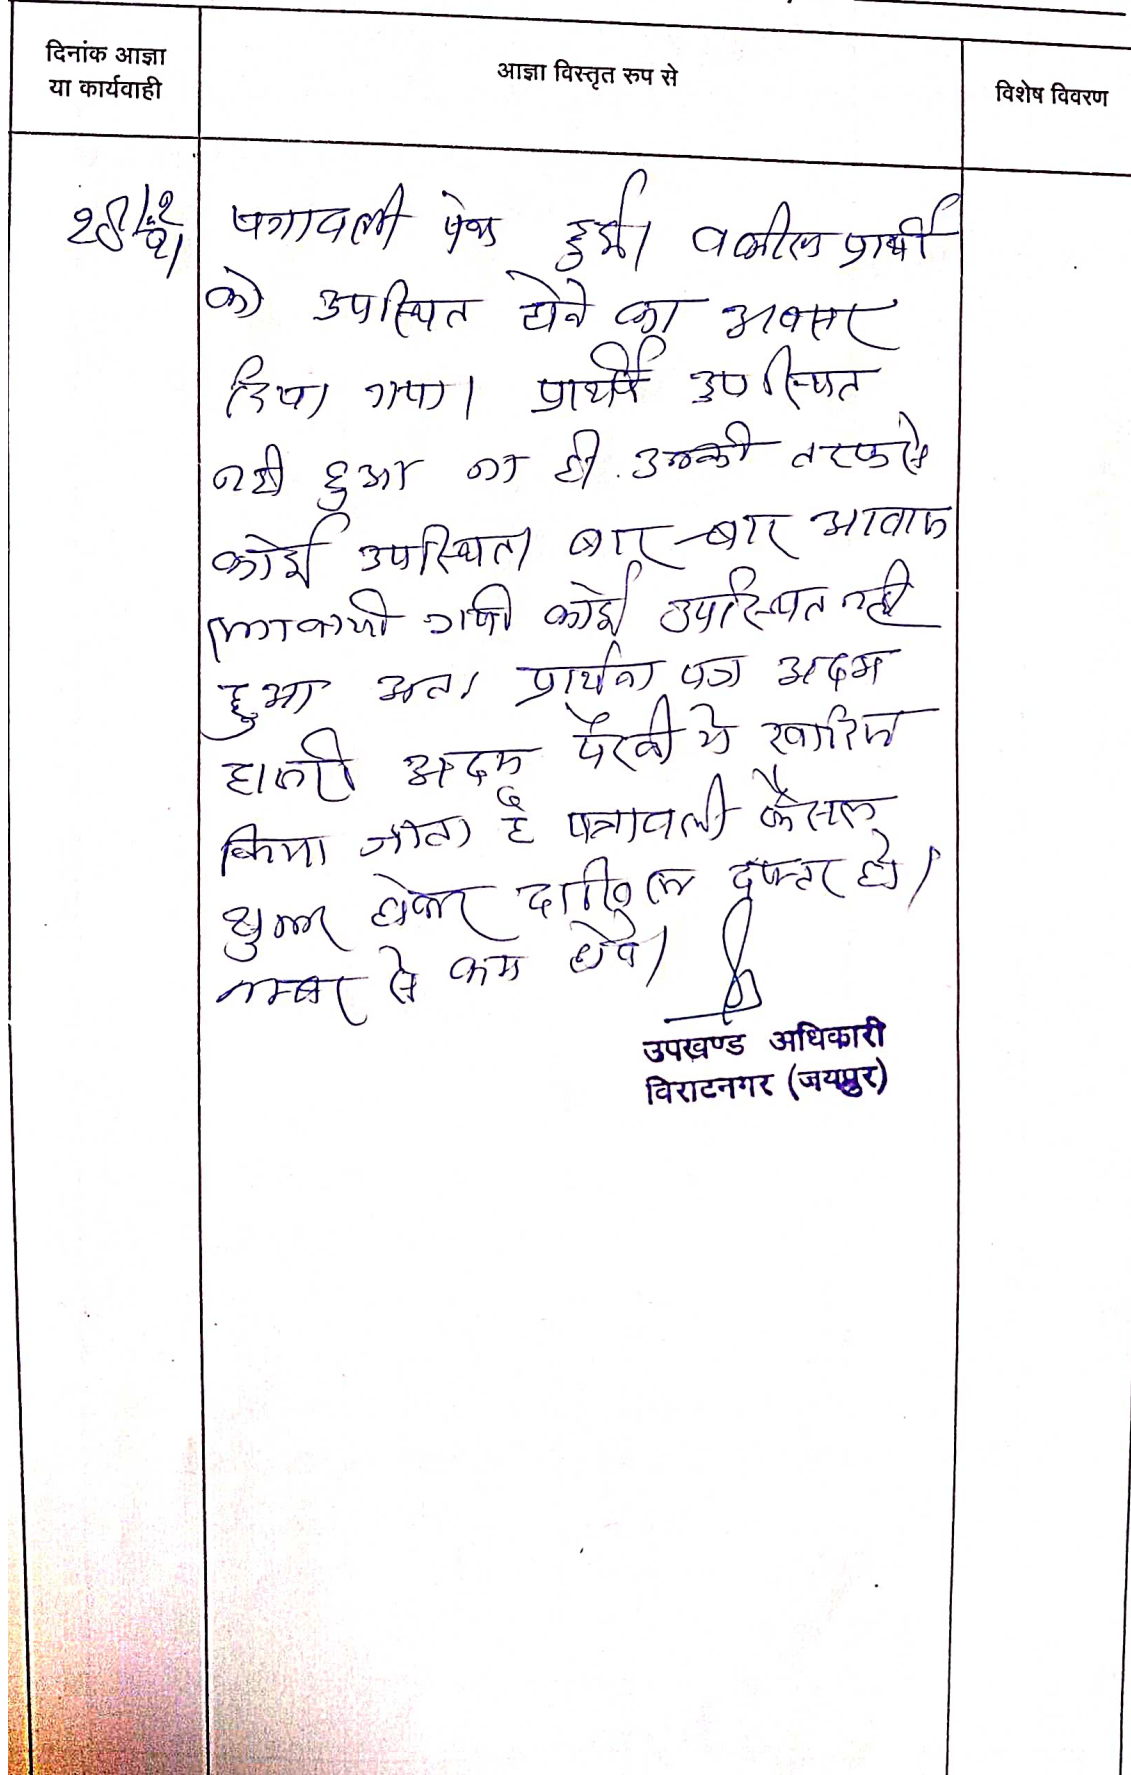 दिनांक आज्ञा
या कार्यवाही
आज्ञा विस्तृत रुप से
विशेष विवरण
पत्रावली पेश हुई। वकील प्रार्थी
को उपस्थित होने का अवसर
दिया गया। प्रार्थी उपस्थित
नही हुआ ना ही उनकी तरफ से
कोई उपस्थित। बार-बार आवाज
लगवायी गयी कोई उपस्थित नही
हुआ अतः प्रार्थना पत्र अदम
हाजरी अदम पैरवी मे खारिज
किया जाता है पत्रावली फैसल
शुमार होकर दाखिल दफ्तर हो।
नम्बर से कम होवे।
उपखण्ड अधिकारी
विराटनगर (जयपुर)